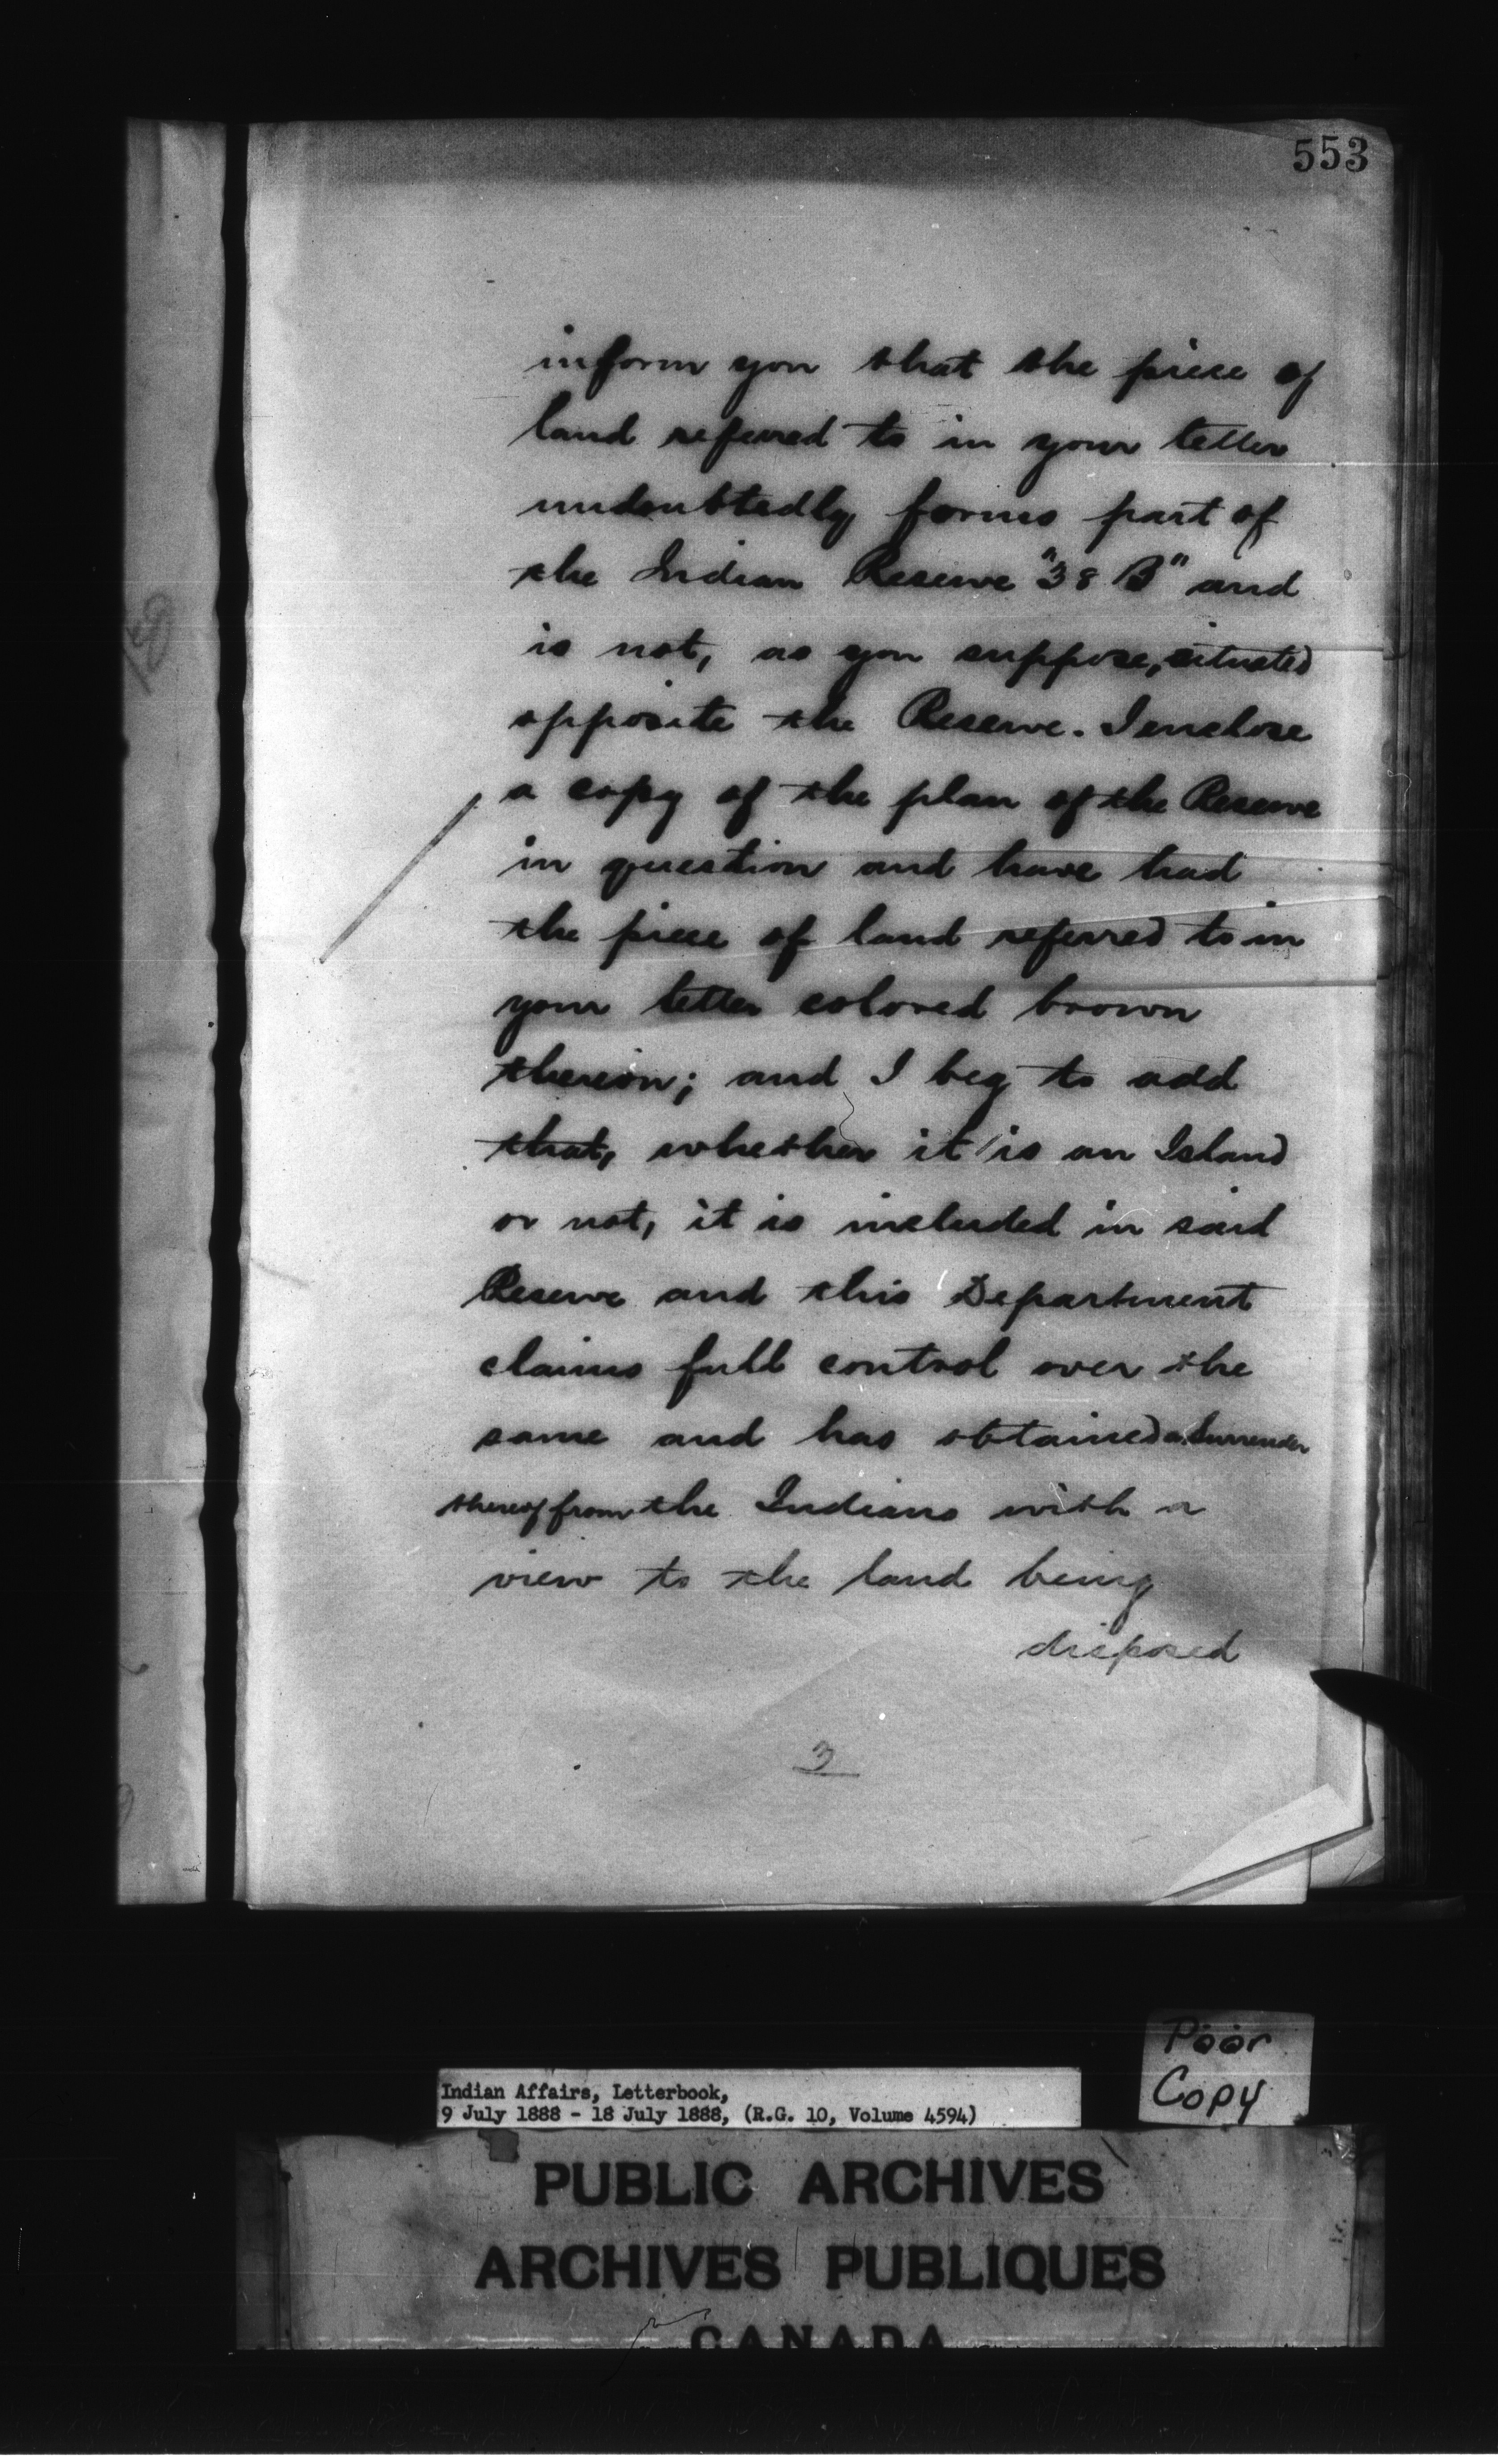 553
inform you that the piece of
land referred to in your letter
undoubtedly forms part of
the Indian Reserve "38 B" and
is not, as you suppose, situated
opposite the Reserve. I enclose
a copy of the plan of the Reserve
in question and have had
the piece of land referred to in
your letter colored brown
thereon; and I beg to add
that, whether it is an Island
or not, it is included in said
Reserve and this Department
claims full control over the
same and has obtained a Surrender
thereof from the Indians with a
view to the land being
disposed
3
Poor
Copy
Indian Affairs, Letterbook,
9 July 1888 - 18 July 1888, (R.G. 10, Volume 4594)
PUBLIC ARCHIVES
ARCHIVES PUBLIQUES
CANADA